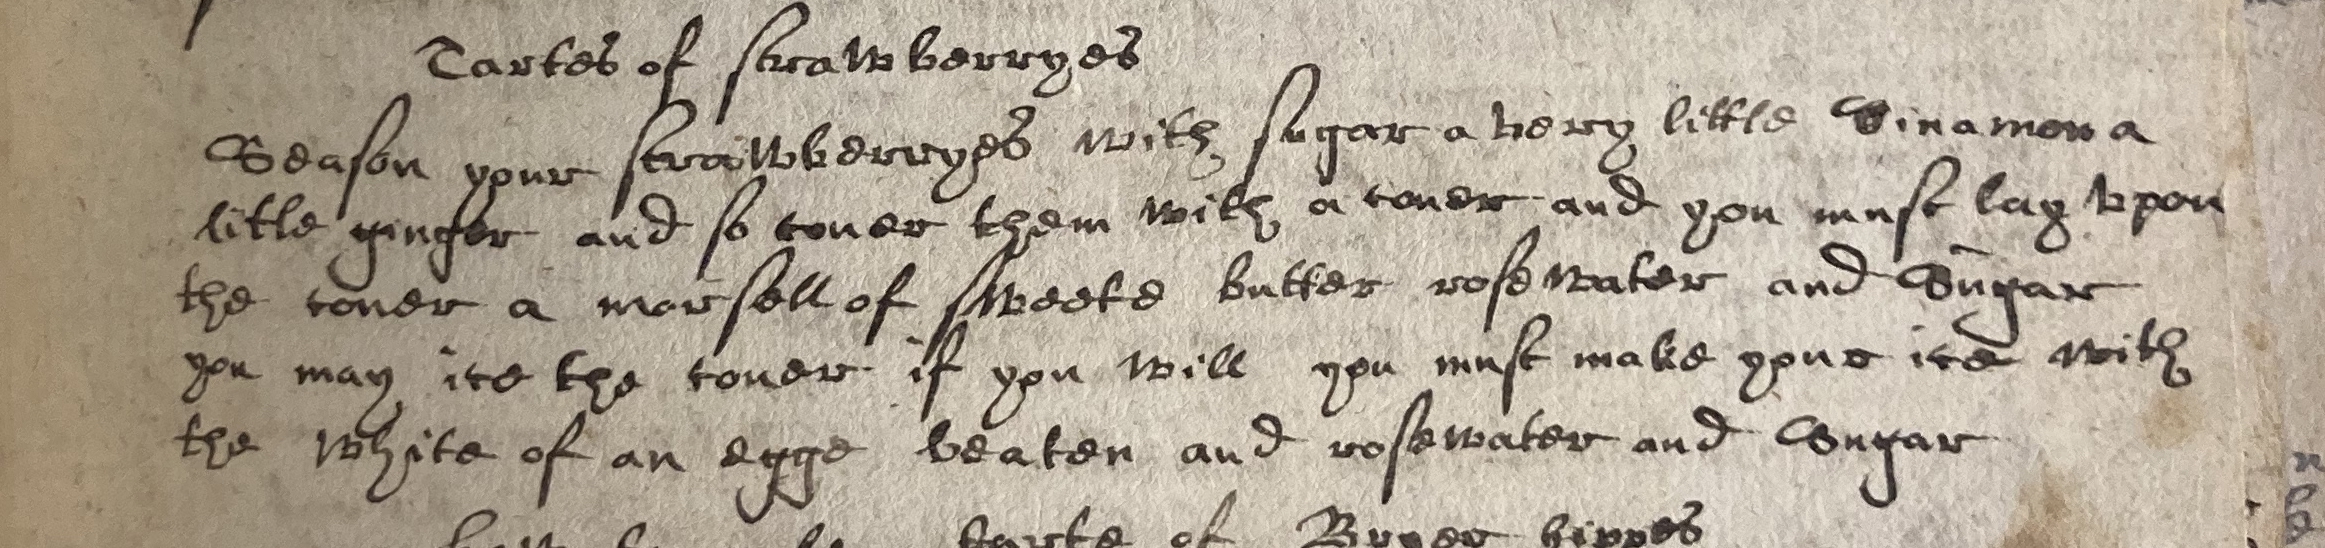 Tartes of strawberryes
Season your strawberryes with sugar a very little Sinamon a
litle ginger and so couer them with a couer and you must lay vpon
the couer a morsell of sweete butter rosewater and Sugar
you may ice the couer if you will you must make your ice with
the white of an egge beaten and rosewater and Sugar
tarte of Bryer hippes